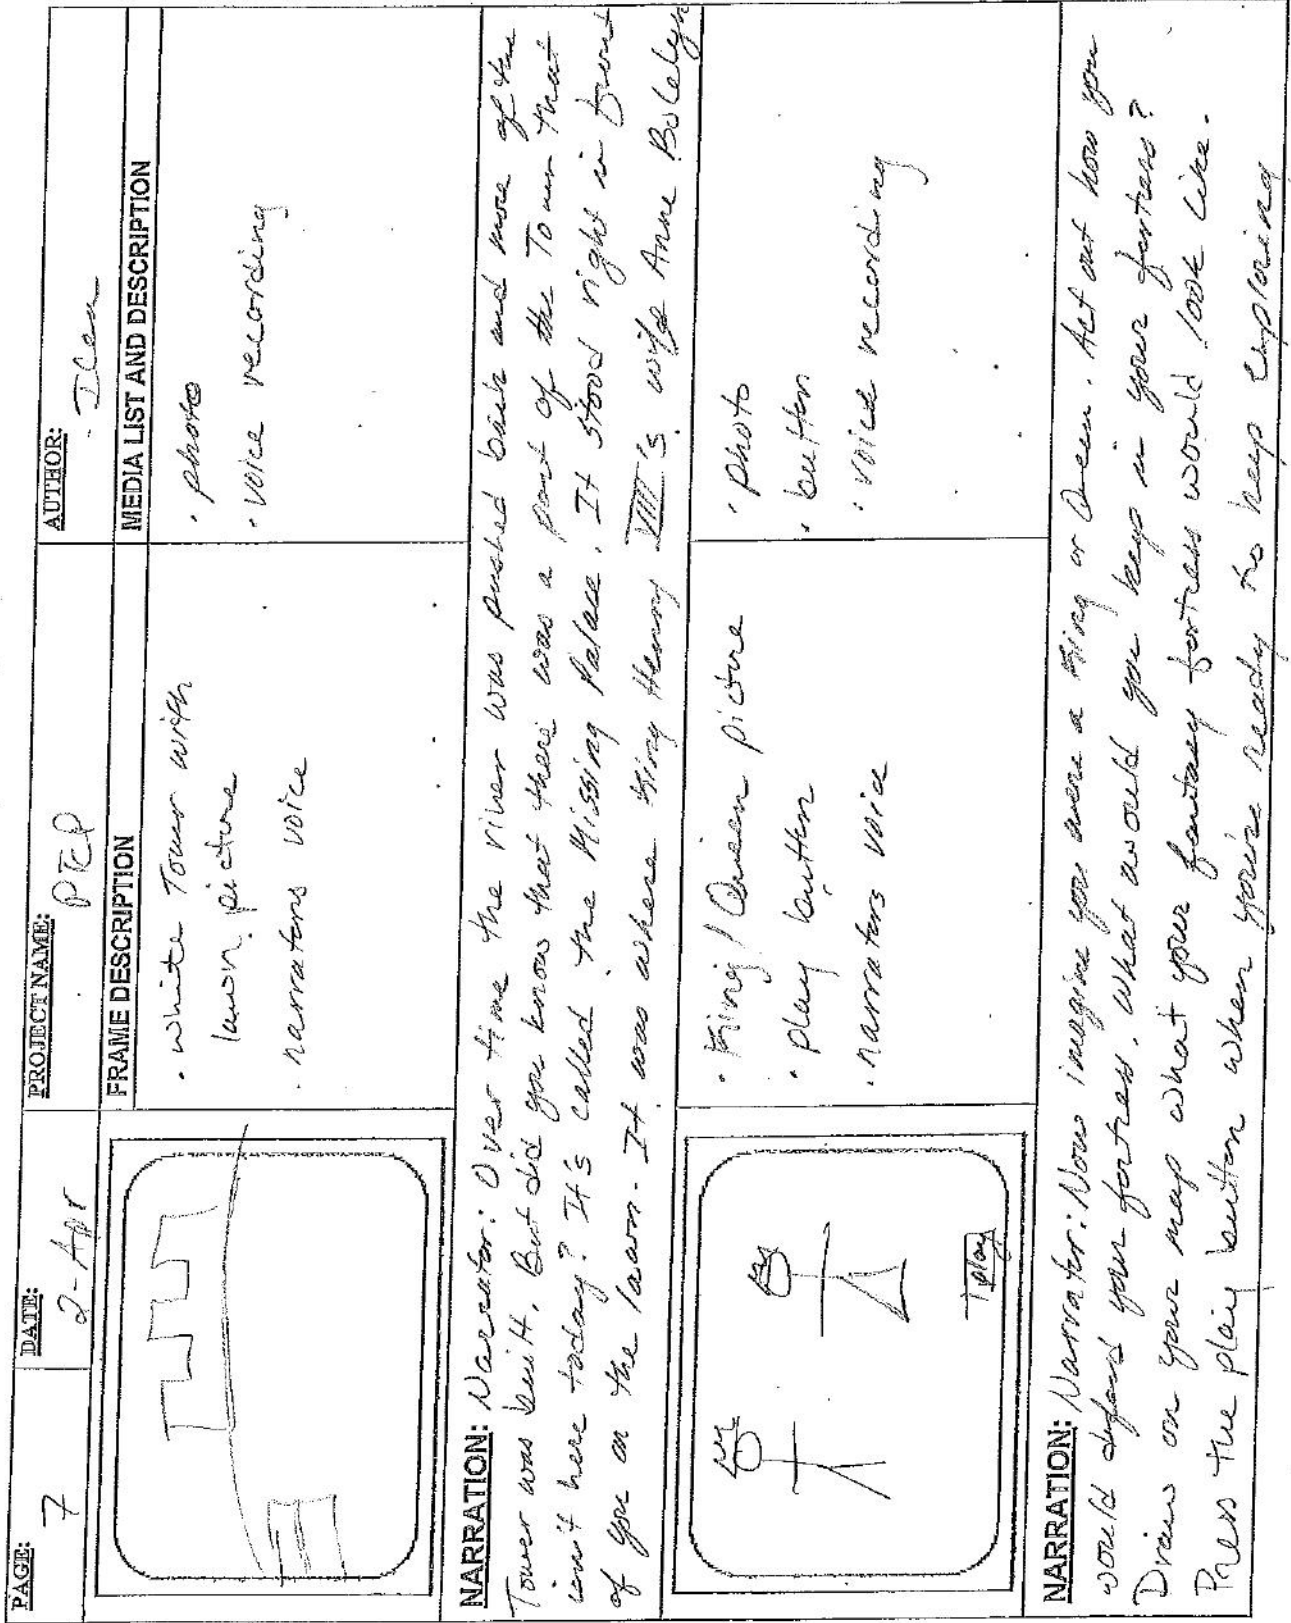 PAGE: 7
DATE: 2-Apr
PROJECT NAME: PTCP
AUTHOR:
FRAME DESCRIPTION
MEDIA LIST AND DESCRIPTION
· White Tower with
lawn picture
· narrators voice
· photo
· voice recording
NARRATION: Narrator: Over time the river was pushed back and more of the
Tower was built. But did you know that there was a part of the Tower that
isn't here today? It's called the Missing Palace. It stood right in front
of you on the lawn. It was where King Henry VIII's wife Anne Boleyn
play
· King/Queen picture
· play button
· narrators voice
· photo
· button
· voice recording
NARRATION: Narrator: Now imagine you were a King or Queen. Act out how you
would defend your fortress. What would you keep in your fortress?
Draw on your map what your fantasy fortress would look like.
Press the play button when you're ready to keep exploring